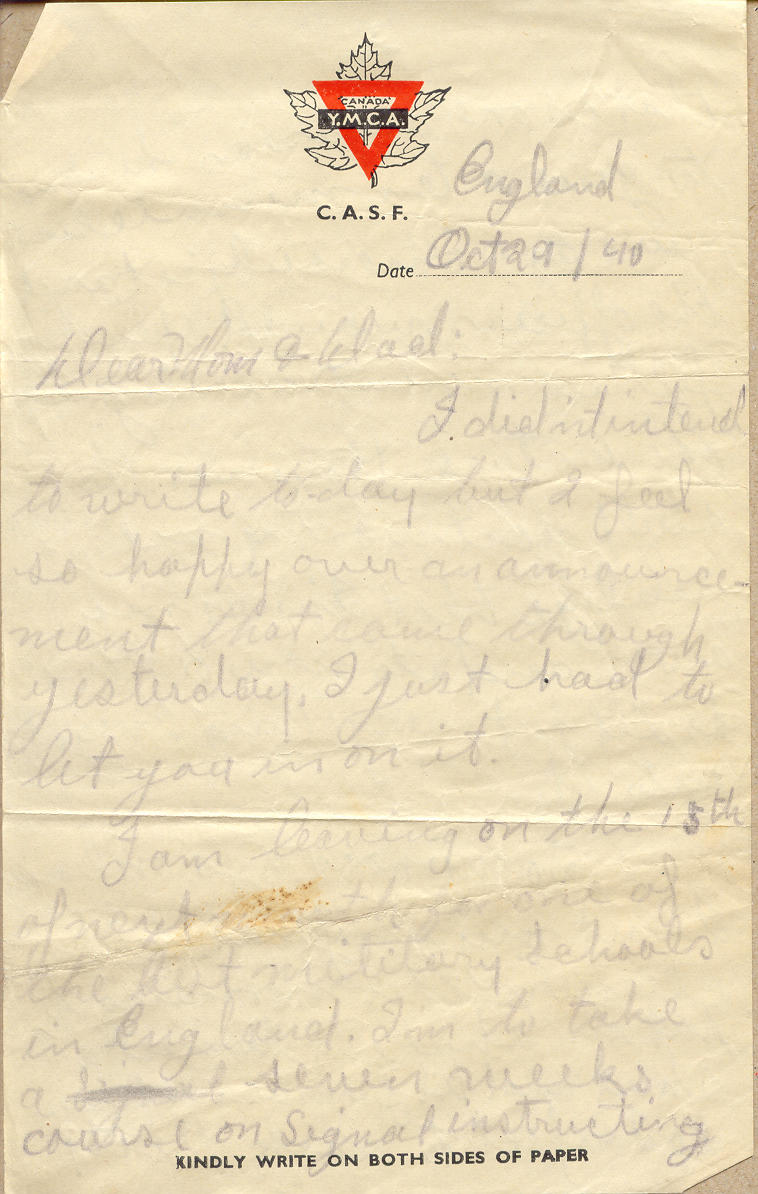 CANADA
Y.M.C.A.
C. A. S. F.
England
Date Oct 29 / 40
Dear Mom & Dad:
I didn't intend
to write to-day but I feel
so happy over an announce-
ment that came through
yesterday, I just had to
let you in on it.
I am leaving on the 15th
of next month for one of
the best military schools
in England. I'm to take
a seven weeks
course on Signal instructing
KINDLY WRITE ON BOTH SIDES OF PAPER